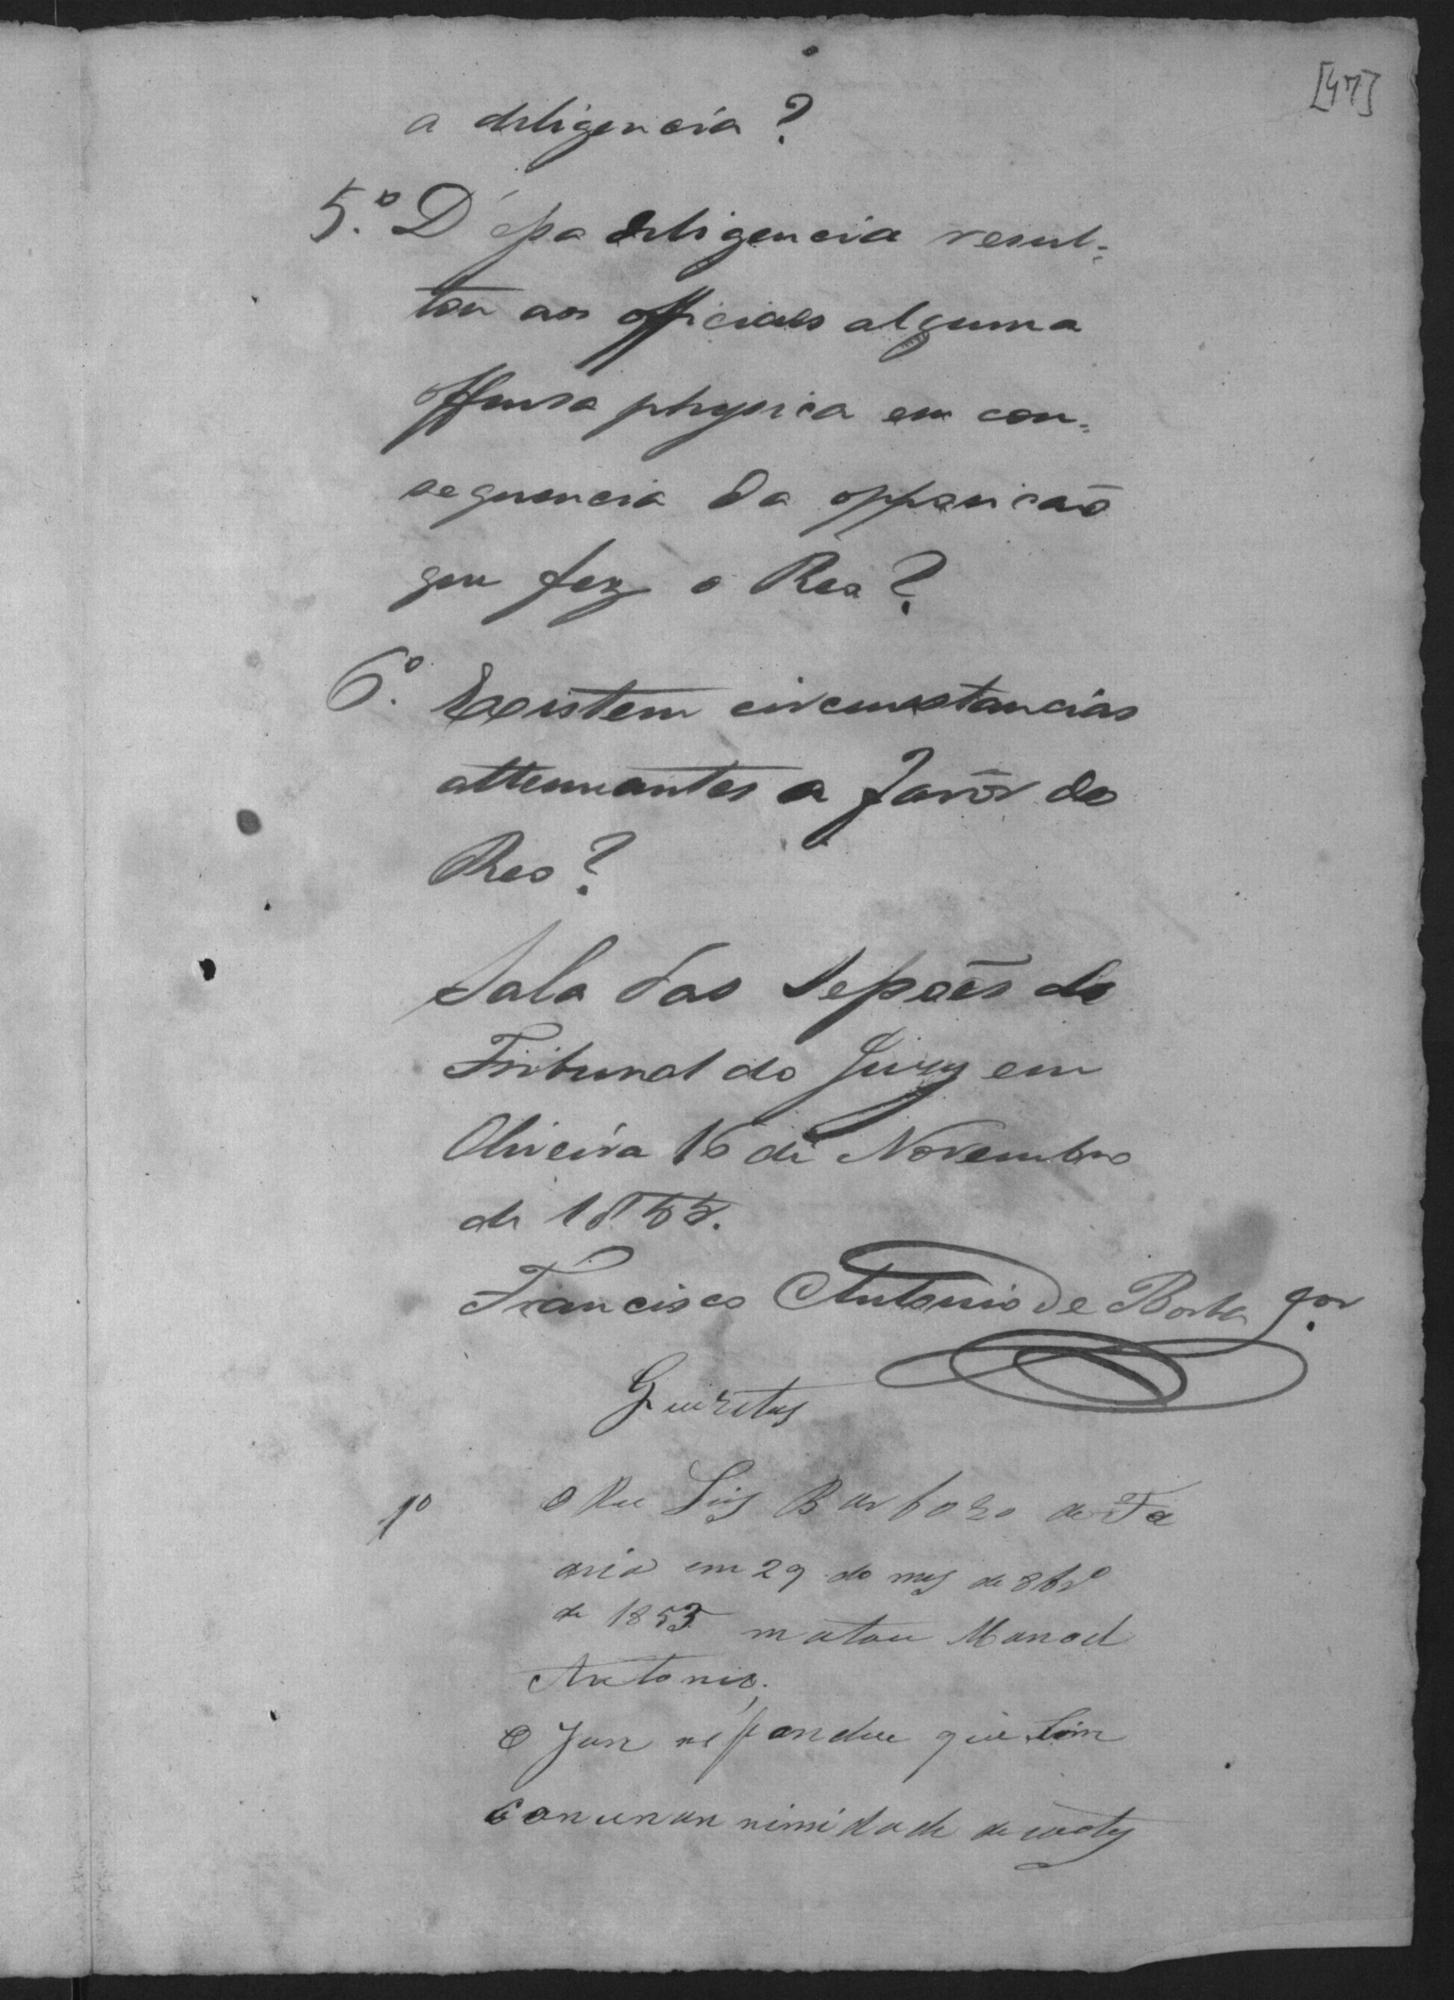 [47]
a deligencia?
5.º D'essa deligencia resul-
tou aos officiaes alguma
offensa physica em con-
sequencia da opposicaõ
que fez o Reo?
6.º Existem circumstancias
attenuantes a favôr do
Reo?
Sala das Sessoẽs do
Tribunal do Jury em
Oliveira 16 de Novembro
de 1855.
Francisco Antonio de Borba
Quezitos
1º O Reu Luis Barbozo de Fa
aria em 29 do mes de 8brº
de 1853 matou Manoel
Antonio;
O Juri respondeu que sim
con unan nimidade de votos